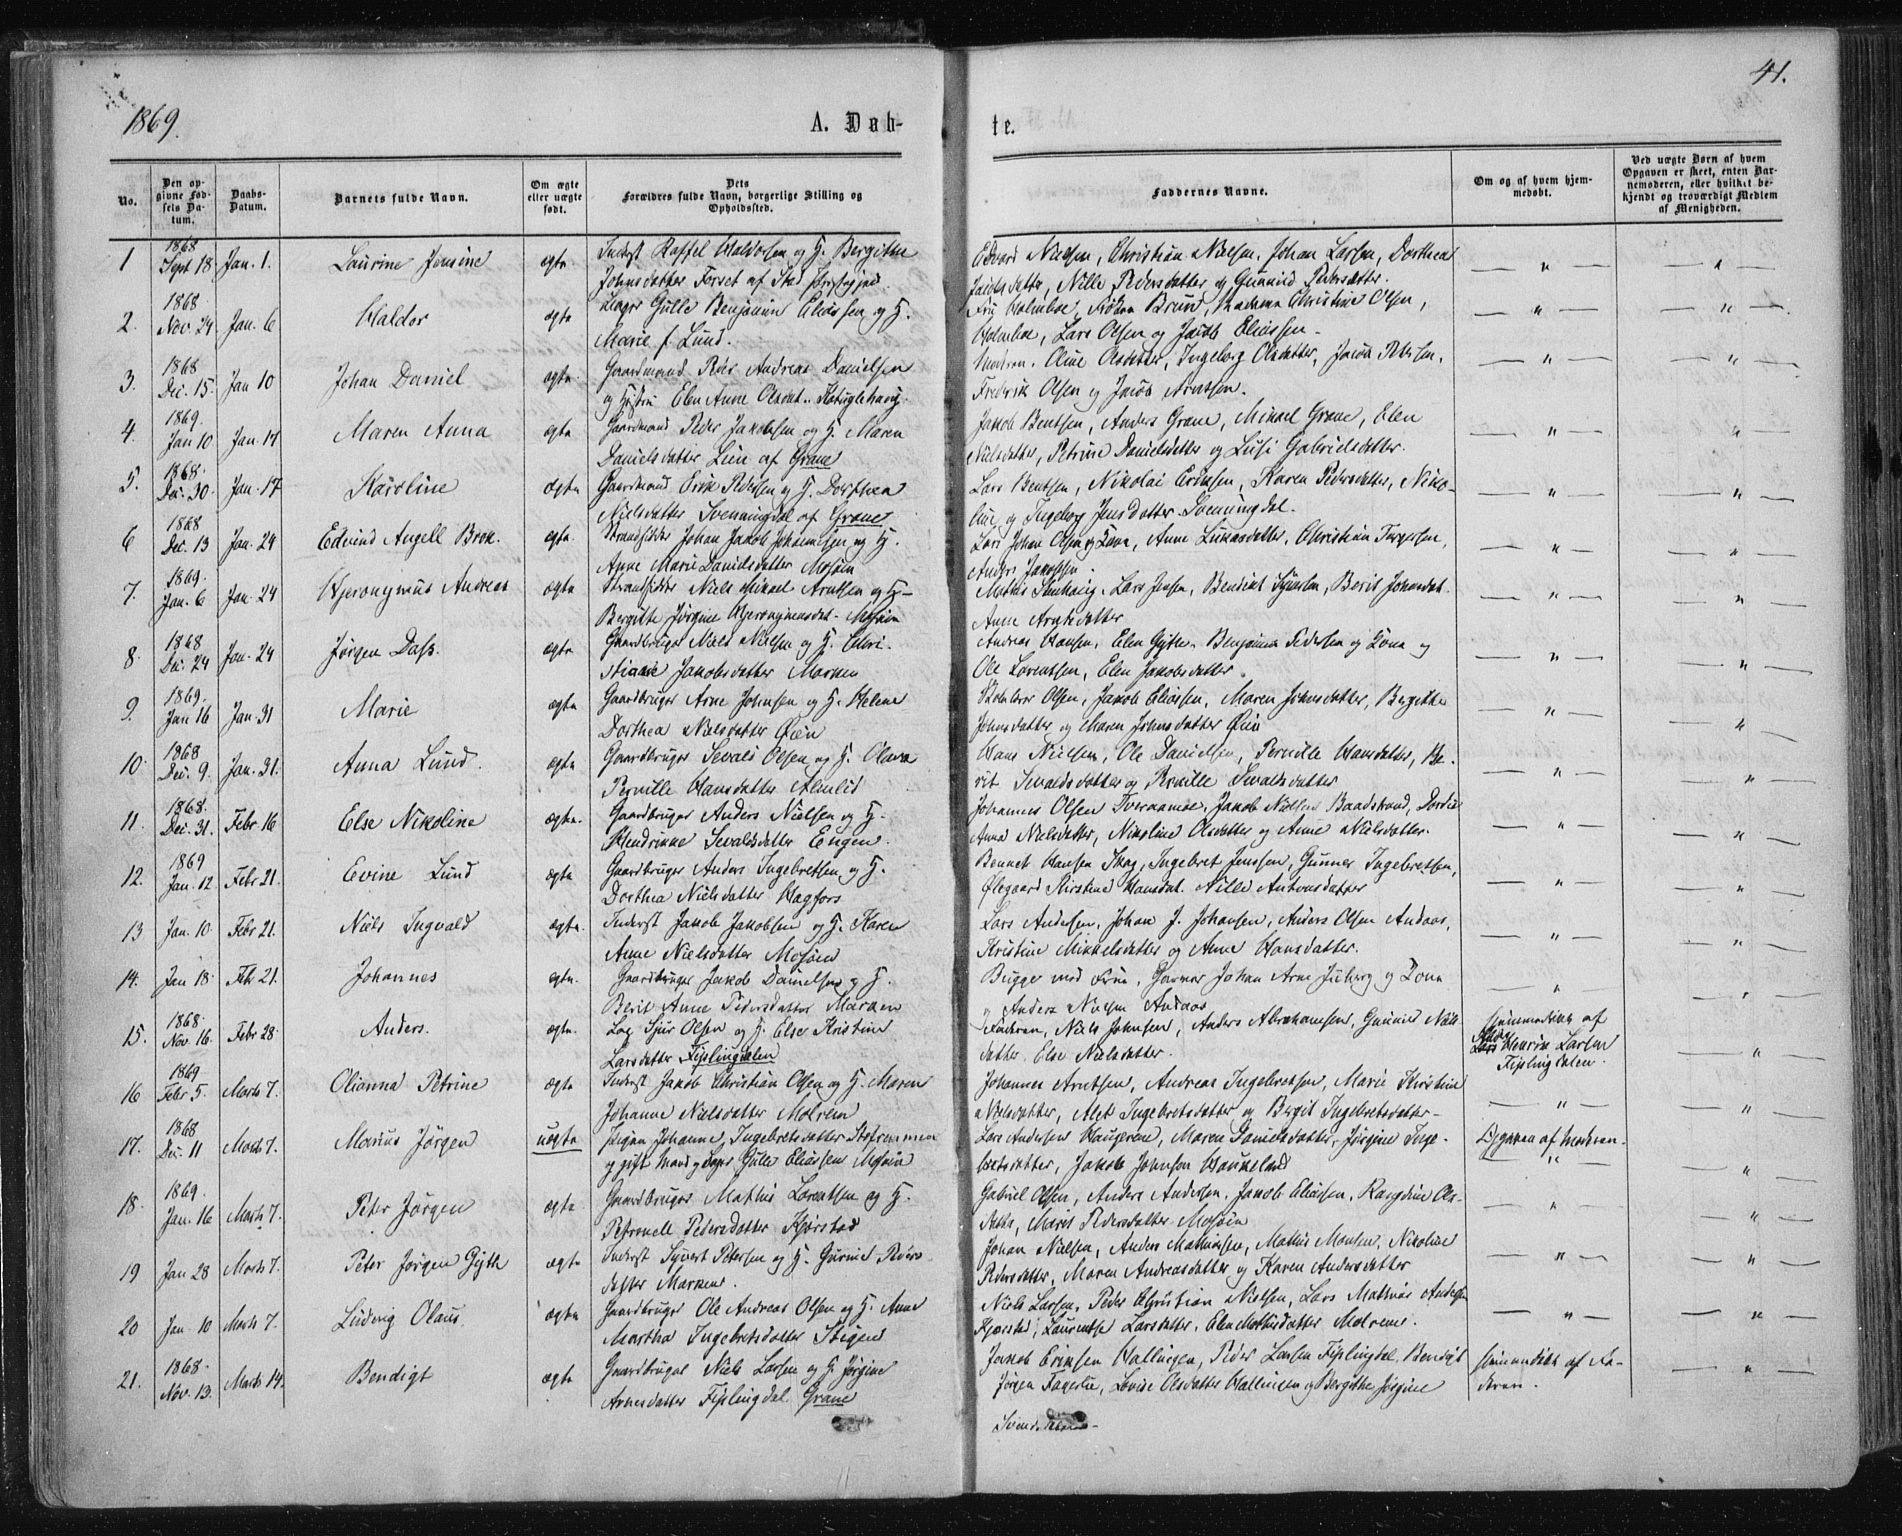 1869.
A. Døb-
te.
41.
No.
Den op-
givne Fød-
sels Da-
tum.
Daabs-
Datum.
Barnets fulde Navn.
Om ægte
eller uægte
født.
Dets
Forældres fulde Navn, borgerlige Stilling og
Opholdssted.
Faddernes Navne.
Om og af hvem hjem-
medøbt.
Ved uægte Børn af hvem
Opgaven er skeet, enten Bar-
nemoderen, eller hvilket be-
kjendt og troværdigt Medlem
af Menigheden.
1 1868 Sept 18 Jan. 1. Laurine Jensine ægte Inderst Haldorsen og H. Bergitha
Johnsdatter Forset af
Edvard Nielsen, Christian Nielsen, Johan Larsen, Dorthea
Nille Pedersdatter og Gunnild Pedersdatter.
2. 1868 Nov. 24 Jan. 6 Haldor ægte Gulle Benjamin Eliassen og H.
Marie f. Lund.
Fru Holmboe, Frøken Brun, Madame Christine Olsen,
Holmboe, Lars Olsen og Jacob Eliassen.
3. 1868 Dec. 15. Jan 10 Johan Daniel ægte Gaardmand Peder Andreas Danielsen
og Hustru Elen Anne
Oline Olsdatter, Ingeborg Olsdatter, Jacob Petersen,
Frederik Olsen og Jacob Arntsen.
4. 1869. Jan 10 Jan. 17 Maren Anna ægte Gaardmand Peder Jakobsen og H. Maren
Danielsdatter Lien af Grane
Jakob Bentsen, Anders Grane, Mikael Grane, Elen
Nielsdatter, Petrine Danielsdatter og Lusi Gabrielsdatter.
5. 1868. Dec. 30. Jan. 17 Karoline ægte Gaardmand Erik Pedersen og H. Dorthea
Nielsdatter Svenningdal af Grane
Lars Bentsen, Nikolai Eriksen, Karen Pedersdatter, Niko-
line og Ingeborg Jensdatter Svenningdal.
6 1868 Dec. 13 Jan. 24 Edvind Angell Brok. ægte Strandsidder Johan Jakob Johannesen og H.
Anne Marie Davidsdatter Mosøen
Lars Johan Olsen og Kone, Anne Lukasdatter, Christian Torgersen,
Anders Jakobsen.
7. 1869. Jan. 6 Jan. 24 Hjeronymus Andreas ægte Strandsidder Niels Mikael Arntsen og H.
Bergitte Jørgine Hjeronymusdat. Mosøen
Lars Jensen, Bendikt Berit Johansdat.
Anne Arntsdatter
8. 1868 Dec. 24 Jan. 24 Jørgen Dass. ægte Gaardbruger Niels Nielsen og H. Chri-
stiane Jakobsdatter Marken
Andreas Hansen, Elen Gjythe, Benjamin Pedersen og Kone og
Ole Lorentsen, Elen Jakobsdatter.
9. 1869. Jan 16 Jan. 31 Marie ægte Gaardbruger Arne Johnsen og H. Helene
Dorthea Nielsdatter Øien
Olsen, Jakob Eliassen, Maren Johnsdatter, Bergitte
Johnsdatter og Maren Johnsdatter Øien
10. 1868 Dec. 9. Jan. 31. Anna Lund. ægte Gaardbruger Sevald Olsen og H. Olava
Pernille Hansdatter Almlid
Hans Nielsen, Ole Danielsen, Pernille Hansdatter, Be-
rit Sevaldsdatter og Pernille Sevaldsdatter
11. 1868. Dec. 31. Febr 16 Else Nikoline ægte. Gaardbruger Anders Nielsen og H.
Hendrikke Sevaldsdatter Engen
Johannes Olsen Tveraamoe, Jakob Nielsen Baadstrand,
Anna Nielsdatter, Nikoline Olsdatter og Anne Nielsdatter.
12. 1869 Jan. 12 Febr 21. Evine Lund ægte Gaardbruger Anders Ingebretsen og H.
Dorthea Nielsdatter Hagfors
Bennet Hansen Skog, Ingebret Jenssen, Gunner Ingebretsen,
Ølegaard Kirstine Hansdat. Nille Antonsdatter
13 Jan. 10. Febr 21. Niels Ingvald ægte. Inderst Jakob Jakobsen og H. Karen
Anne Nielsdatter Mosøen
Lars Andersen, Johan J. Johansen, Anders Olsen Andaas,
Kristine Mikkelsdatter og Anne Hansdatter.
14. Jan 18. Febr 21. Johannes ægte. Gaardbruger Jakob Danielsen og H.
Berit Anne Pedersdatter Marken
Bugge med Frue, Garver Johan Arne Juberg og Kone
og Anders Nielsen Andaas
15. 1868 Nov. 16. Febr 28. Anders. ægte. Sjur Olsen og H. Else Kristine
Larsdatter Fiplingdalen
Faderen, Niels Johnsen, Anders Abrahamsen, Gunnild Niels-
datter. Else Nielsdatter.
hjemmedøbt af
Henrik Larsen
Fiplingdalen.
16 1869 Febr 5. Marts 7. Olianna Petrine ægte Inderst Jakob Christian Olsen og H. Maren
Johanne Nielsdatter Molrem
Johannes Arntsen, Andreas Ingebretsen, Marie Kirstine
Nielsdatter, Alet Ingebretsdatter og Bergit Ingebretsdatter.
17. 1868 Dec. 11 Marts 7. Marius Jørgen uægte Pigen Johanne Ingebretsdatter
og gift Mand Gulle Eliassen Mosøen
Lars Andersen Haugerene, Maren Danielsdatter, Jørgine Inge-
bretsdatter, Jakob Johnsen Haukeland
Opgaven af Moderen.
18. 1869. Jan. 16 Marts 7. Peter Jørgen ægte Gaardbruger Mathis Lorentsen og H.
Petronell Pedersdatter Kjørstad
Gabriel Olsen, Anders Andersen, Jakob Eliassen,
Maris Pedersdatter Mosøen
19 Jan 28 Marts 7. Peter Jørgen Gjyth ægte Inderst Sivert Petersen og H. Gurine Peders-
datter Marken.
Johan Nielsen, Anders Mathiassen, Mathis Monsen, Nikoline
Pedersdatter, Maren Andreasdatter og Karen Andersdatter
20 Jan 10 Marts 7. Ludvig Olaus. ægte Gaardbruger Ole Andreas Olsen og H. Anne
Martha Ingebretsdatter Stigen
Niels Larsen, Peder Christian Nielsen, Lars Mathias Andersen
Kjørstad, Laurentse Larsdatter, Elen Mathisdatter Molrem.
21. 1868. Nov. 13. Marts 14. Bendigt ægte Gaardbruger Niels Larsen og H. Jørgine
Arnesdatter Fiplingdal Grane
Jakob Eriksen Hallingen, Peder Larsen Fiplingdal, Bendigt
Jørgen Fagerlie, Lovise Olsdatter Hallingen og Bergithe Jørgine
hjemmedøbt af Fa-
deren.